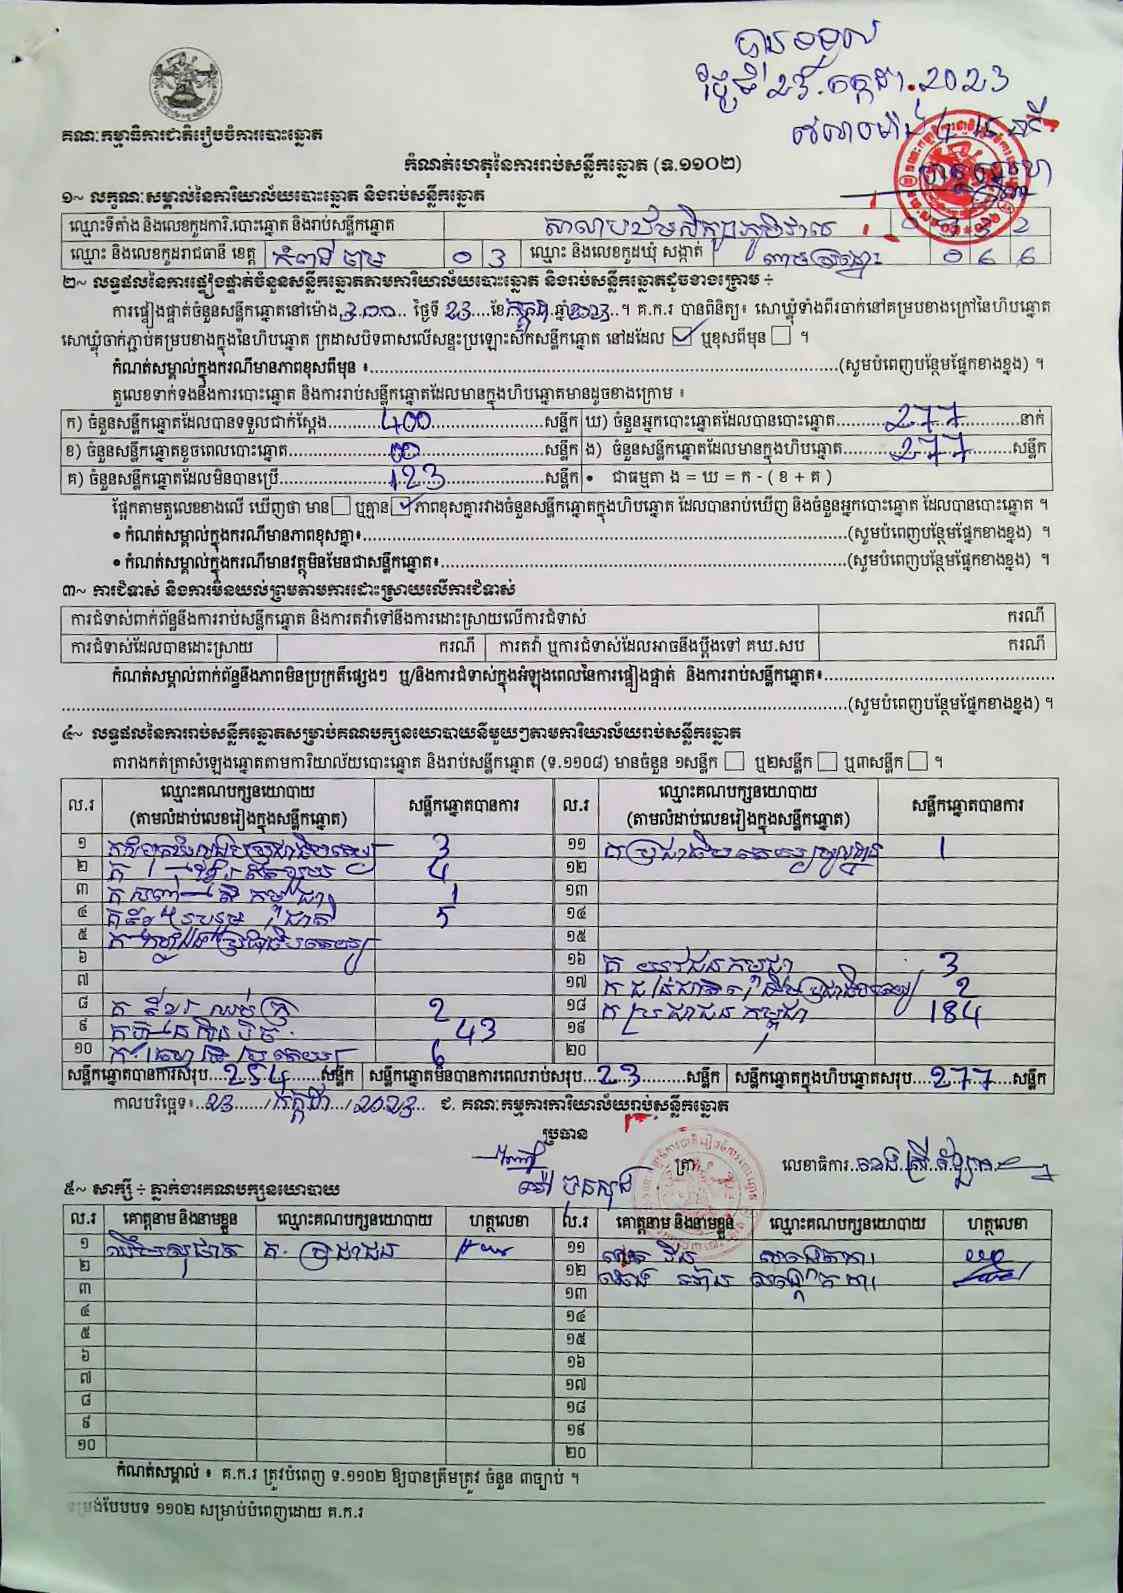 បានទទួល
ថ្ងៃទី 23 . កក្កដា . 2023
គណៈកម្មាធិការជាតិរៀបចំការបោះឆ្នោត
កំណត់ហេតុនៃការរាប់សន្លឹកឆ្នោត (ទ.១១០២)
១~ លក្ខណៈសម្គាល់នៃការិយាល័យបោះឆ្នោត និងរាប់សន្លឹកឆ្នោត
ឈ្មោះទីតាំង និងលេខកូដការិ.បោះឆ្នោត និងរាប់សន្លឹកឆ្នោត
ឈ្មោះ និងលេខកូដរាជធានី ខេត្ត កំពង់ចាម 0 3 ឈ្មោះ និងលេខកូដឃុំ សង្កាត់ 0 6 6
២~ លទ្ធផលនៃការផ្ទៀងផ្ទាត់ចំនួនសន្លឹកឆ្នោតតាមការិយាល័យបោះឆ្នោត និងរាប់សន្លឹកឆ្នោតដូចខាងក្រោម ÷
ការផ្ទៀងផ្ទាត់ចំនួនសន្លឹកឆ្នោតនៅម៉ោង 3.00 ថ្ងៃទី 23 ខែ កក្កដា ឆ្នាំ 2023 ។ គ.ក.រ បានពិនិត្យ៖ សោឃ្លុំទាំងពីរចាក់នៅគម្របខាងក្រៅនៃហិបឆ្នោត
សោឃ្លុំចាក់ភ្ជាប់គម្របខាងក្នុងនៃហិបឆ្នោត ក្រដាសបិទពាសលើសន្ទះប្រឡោះស៊កសន្លឹកឆ្នោត នៅដដែល ☑ ឬខុសពីមុន ☐ ។
កំណត់សម្គាល់ក្នុងករណីមានភាពខុសពីមុន ៖..........(សូមបំពេញបន្ថែមផ្នែកខាងខ្នង) ។
តួលេខទាក់ទងនឹងការបោះឆ្នោត និងការរាប់សន្លឹកឆ្នោតដែលមានក្នុងហិបឆ្នោតមានដូចខាងក្រោម ៖
ក) ចំនួនសន្លឹកឆ្នោតដែលបានទទួលជាក់ស្តែង 400 សន្លឹក ឃ) ចំនួនអ្នកបោះឆ្នោតដែលបានបោះឆ្នោត 277 នាក់
ខ) ចំនួនសន្លឹកឆ្នោតខូចពេលបោះឆ្នោត 00 សន្លឹក ង) ចំនួនសន្លឹកឆ្នោតដែលមានក្នុងហិបឆ្នោត 277 សន្លឹក
គ) ចំនួនសន្លឹកឆ្នោតដែលមិនបានប្រើ 123 សន្លឹក • ជាធម្មតា ង = ឃ = ក - ( ខ + គ )
ផ្អែកតាមតួលេខខាងលើ ឃើញថា មាន ☐ ឬគ្មាន ☑ ភាពខុសគ្នារវាងចំនួនសន្លឹកឆ្នោតក្នុងហិបឆ្នោត ដែលបានរាប់ឃើញ និងចំនួនអ្នកបោះឆ្នោត ដែលបានបោះឆ្នោត ។
• កំណត់សម្គាល់ក្នុងករណីមានភាពខុសគ្នា៖..........(សូមបំពេញបន្ថែមផ្នែកខាងខ្នង) ។
• កំណត់សម្គាល់ក្នុងករណីមានវត្ថុមិនមែនជាសន្លឹកឆ្នោត៖..........(សូមបំពេញបន្ថែមផ្នែកខាងខ្នង) ។
៣~ ការជំទាស់ និងការមិនយល់ព្រមតាមការដោះស្រាយលើការជំទាស់
ការជំទាស់ពាក់ព័ន្ធនឹងការរាប់សន្លឹកឆ្នោត និងការតវ៉ាទៅនឹងការដោះស្រាយលើការជំទាស់ ករណី
ការជំទាស់ដែលបានដោះស្រាយ ករណី ការតវ៉ា ឬការជំទាស់ដែលអាចនឹងប្តឹងទៅ គឃ.សប ករណី
កំណត់សម្គាល់ពាក់ព័ន្ធនឹងភាពមិនប្រក្រតីផ្សេងៗ ឬ/និងការជំទាស់ក្នុងអំឡុងពេលនៃការផ្ទៀងផ្ទាត់ និងការរាប់សន្លឹកឆ្នោត៖..........
..........(សូមបំពេញបន្ថែមផ្នែកខាងខ្នង) ។
៤~ លទ្ធផលនៃការរាប់សន្លឹកឆ្នោតសម្រាប់គណបក្សនយោបាយនីមួយៗតាមការិយាល័យរាប់សន្លឹកឆ្នោត
តារាងកត់ត្រាសំឡេងឆ្នោតតាមការិយាល័យបោះឆ្នោត និងរាប់សន្លឹកឆ្នោត (ទ.១១០៨) មានចំនួន ១សន្លឹក ☐ ឬ២សន្លឹក ☐ ឬ៣សន្លឹក ☐ ។
ល.រ ឈ្មោះគណបក្សនយោបាយ (តាមលំដាប់លេខរៀងក្នុងសន្លឹកឆ្នោត) សន្លឹកឆ្នោតបានការ ល.រ ឈ្មោះគណបក្សនយោបាយ (តាមលំដាប់លេខរៀងក្នុងសន្លឹកឆ្នោត) សន្លឹកឆ្នោតបានការ
១ 3 ១១ 1
២ 4 ១២
៣ 1 ១៣
៤ 5 ១៤
៥ ១៥
៦ ១៦ គ យុវជនកម្ពុជា 3
៧ ១៧ 2
៨ 2 ១៨ គ ប្រជាជនកម្ពុជា 184
៩ គ ហ៊្វុនស៊ិនប៉ិច 43 ១៩
១០ 6 ២០
សន្លឹកឆ្នោតបានការសរុប 254 សន្លឹក សន្លឹកឆ្នោតមិនបានការពេលរាប់សរុប 23 សន្លឹក សន្លឹកឆ្នោតក្នុងហិបឆ្នោតសរុប 277 សន្លឹក
កាលបរិច្ឆេទ៖ 23 / កក្កដា / 2023 ជ. គណៈកម្មការការិយាល័យរាប់សន្លឹកឆ្នោត
ប្រធាន
ត្រា លេខាធិការ
៥~ សាក្សី ÷ ភ្នាក់ងារគណបក្សនយោបាយ
ល.រ គោត្តនាម និងនាមខ្លួន ឈ្មោះគណបក្សនយោបាយ ហត្ថលេខា ល.រ គោត្តនាម និងនាមខ្លួន ឈ្មោះគណបក្សនយោបាយ ហត្ថលេខា
១ គ. ប្រជាជន ១១
២ ១២
៣ ១៣
៤ ១៤
៥ ១៥
៦ ១៦
៧ ១៧
៨ ១៨
៩ ១៩
១០ ២០
កំណត់សម្គាល់ ៖ គ.ក.រ ត្រូវបំពេញ ទ.១១០២ ឱ្យបានត្រឹមត្រូវ ចំនួន ៣ច្បាប់ ។
ទម្រង់បែបបទ ១១០២ សម្រាប់បំពេញដោយ គ.ក.រ